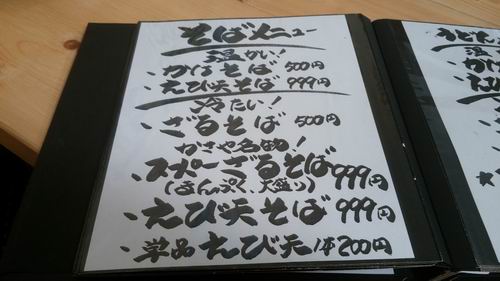 そばメニュー
温かい!
・かけそば 500円
・えび天そば 999円
冷たい!
・ざるそば 500円
かさや名物!
・スポーざるそば 999円
(まんぷく、大盛り)
・えび天そば 999円
・単品えび天1本200円
うどん
かけ